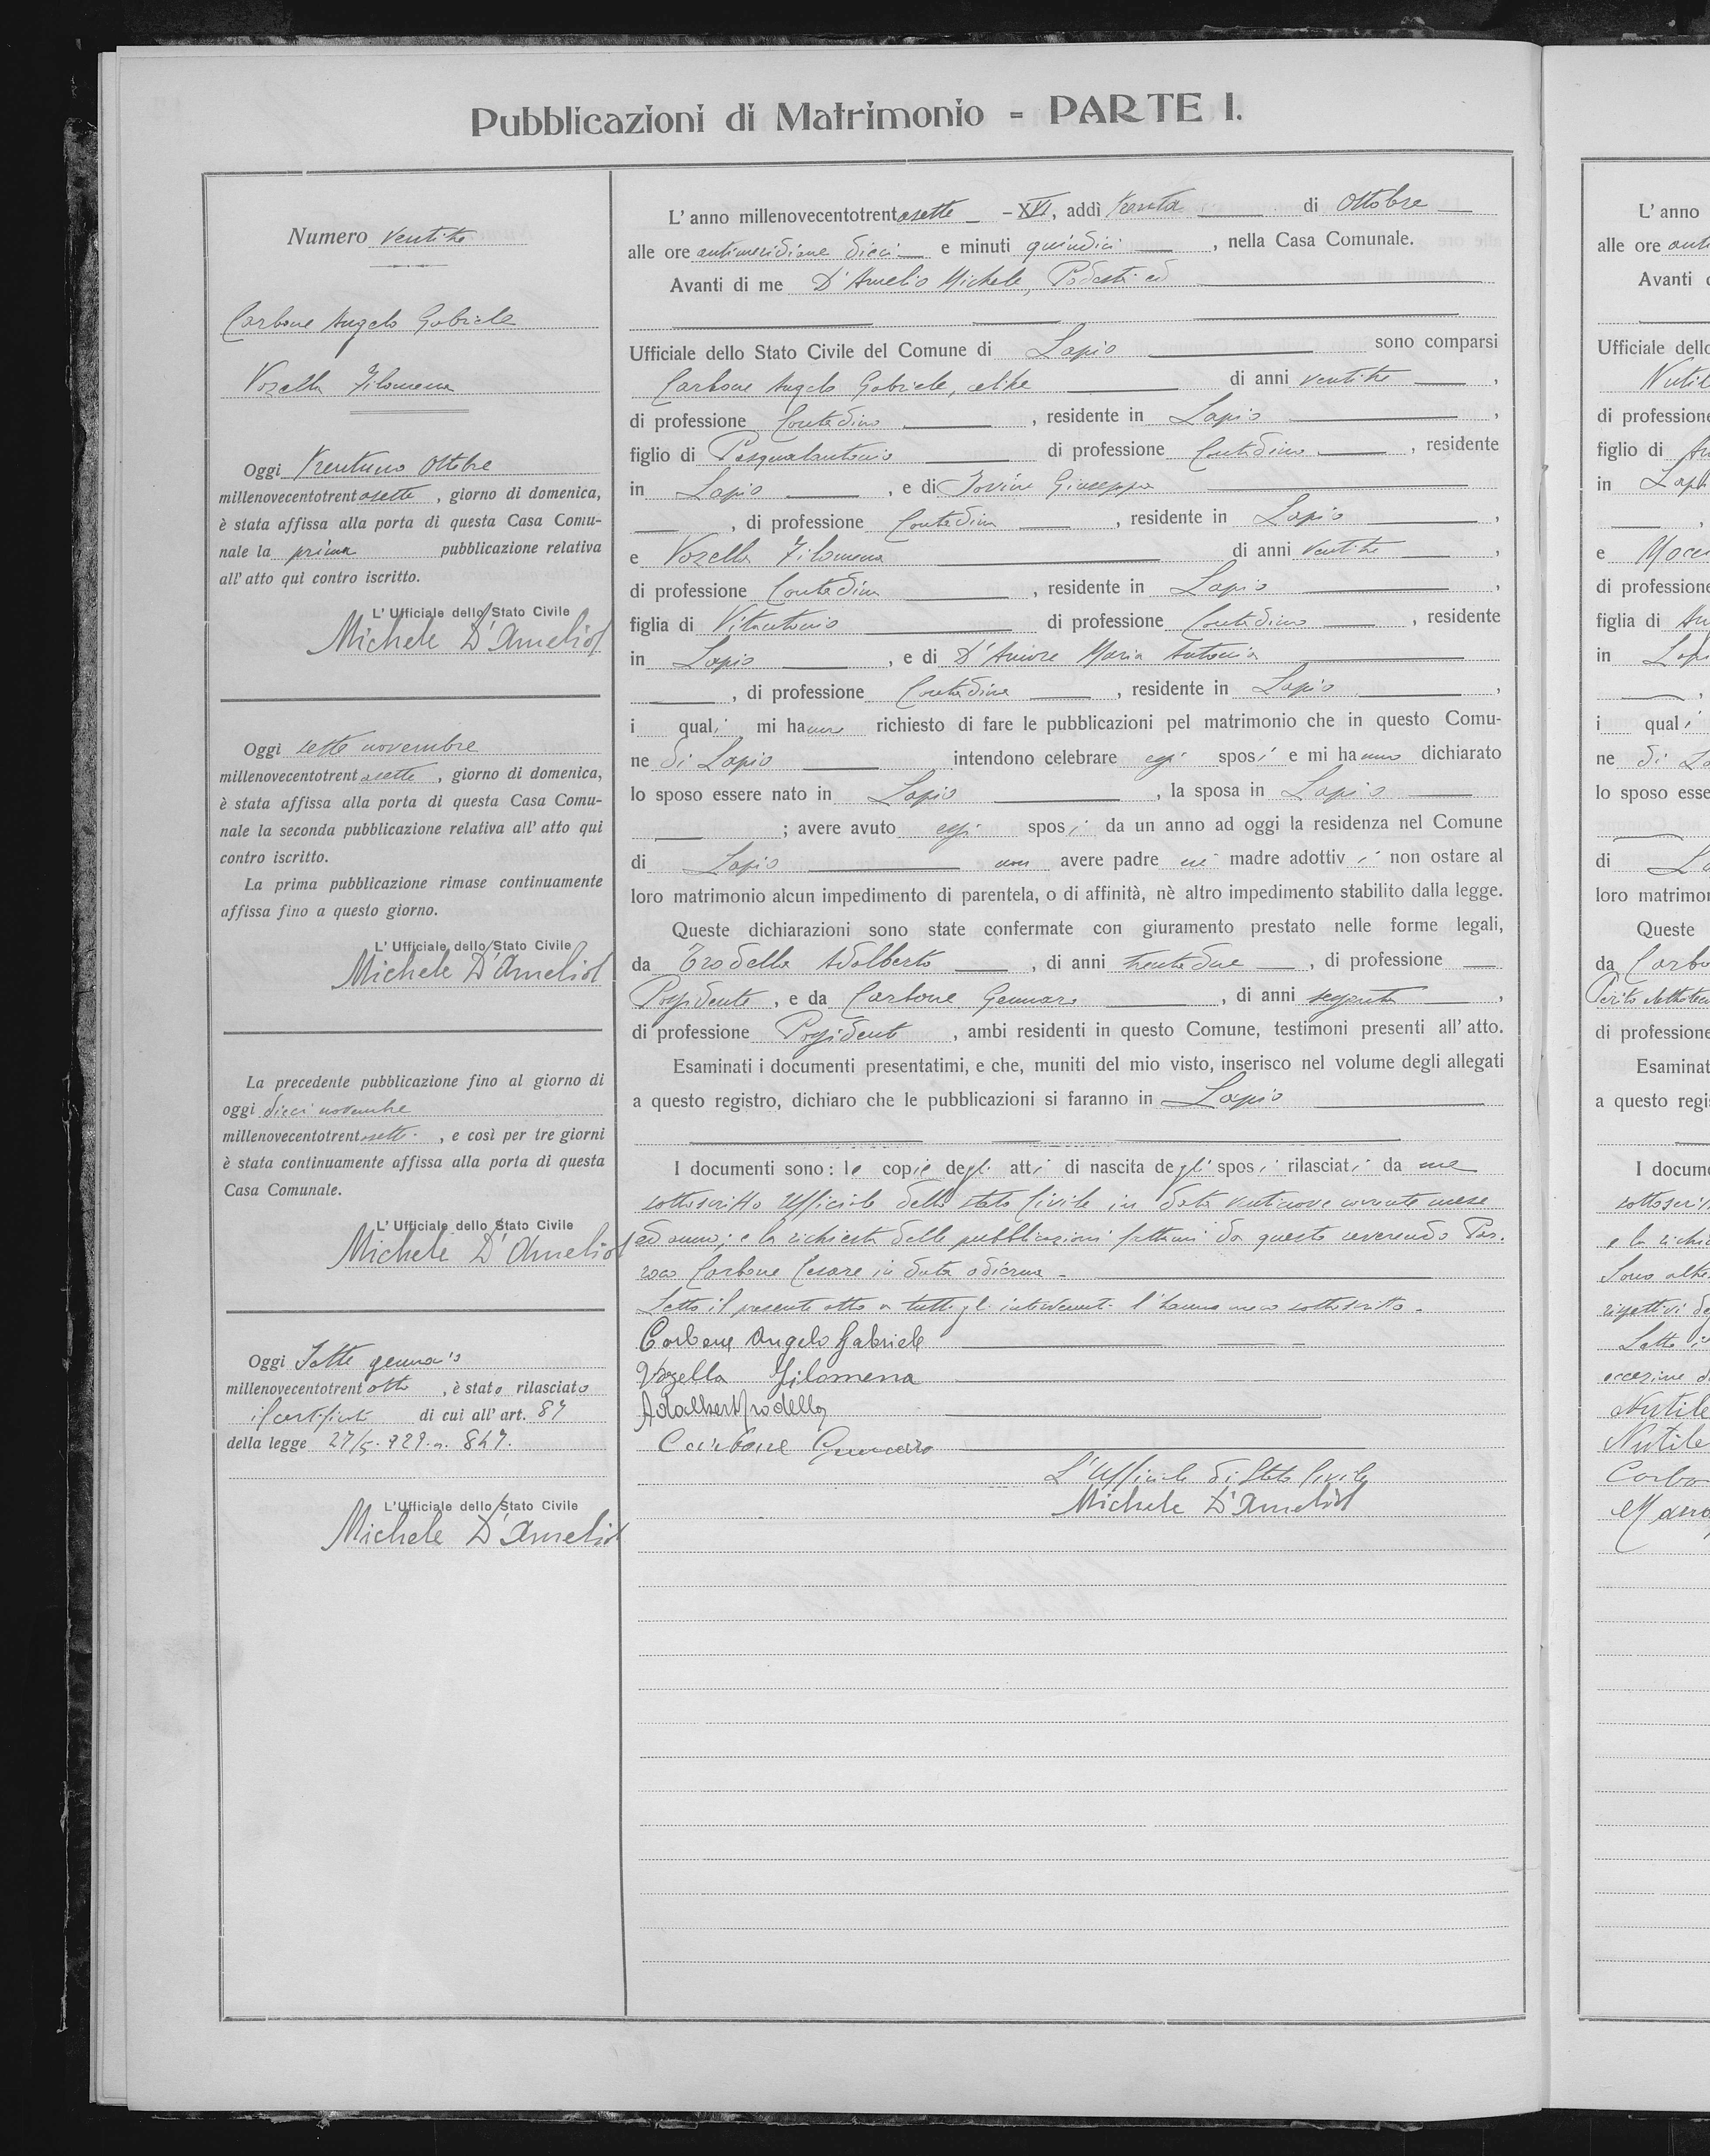 Pubblicazioni di Matrimonio = PARTE I.
Numero ventitre
Carbone Angelo Gabriele
Vozella Filomena
Oggi trentuno Ottobre
millenovecentotrentasette, giorno di domenica,
è stata affissa alla porta di questa Casa Comu-
nale la prima pubblicazione relativa
all'atto qui contro iscritto.
L'Ufficiale dello Stato Civile
Michele D'Amelio
Oggi sette novembre
millenovecentotrentasette, giorno di domenica,
è stata affissa alla porta di questa Casa Comu-
nale la seconda pubblicazione relativa all'atto qui
contro iscritto.
La prima pubblicazione rimase continuamente
affissa fino a questo giorno.
L'Ufficiale dello Stato Civile
Michele D'Amelio
La precedente pubblicazione fino al giorno di
oggi dieci novembre
millenovecentotrentasette, e così per tre giorni
è stata continuamente affissa alla porta di questa
Casa Comunale.
L'Ufficiale dello Stato Civile
Michele D'Amelio
Oggi Sette gennaio
millenovecentotrentotto, è stato rilasciato
il certificato di cui all'art. 87
della legge 27/5.929.n. 847.
L'Ufficiale dello Stato Civile
Michele D'Amelio
L'anno millenovecentotrentasette - XVI, addì trenta di Ottobre
alle ore antimeridiane dieci e minuti quindici, nella Casa Comunale.
Avanti di me D'Amelio Michele, Podestà ed
Ufficiale dello Stato Civile del Comune di Lapio sono comparsi
Carbone Angelo Gabriele, celibe di anni ventitre,
di professione Contadino, residente in Lapio,
figlio di Pasqualantonio di professione Contadino, residente
in Lapio, e di Iovine Giuseppa
, di professione Contadina, residente in Lapio,
e Vozella Filomena di anni ventitre,
di professione Contadina, residente in Lapio,
figlia di Vitantonio di professione Contadino, residente
in Lapio, e di D'Amore Maria Antonia
, di professione Contadina, residente in Lapio,
i quali mi hanno richiesto di fare le pubblicazioni pel matrimonio che in questo Comu-
ne di Lapio intendono celebrare essi sposi e mi hanno dichiarato
lo sposo essere nato in Lapio, la sposa in Lapio
; avere avuto essi sposi da un anno ad oggi la residenza nel Comune
di Lapio non avere padre nè madre adottivi non ostare al
loro matrimonio alcun impedimento di parentela, o di affinità, nè altro impedimento stabilito dalla legge.
Queste dichiarazioni sono state confermate con giuramento prestato nelle forme legali,
da Trodella Adalberto, di anni trentadue, di professione
Possidente, e da Carbone Gennaro, di anni sessanta,
di professione Possidente, ambi residenti in questo Comune, testimoni presenti all'atto.
Esaminati i documenti presentatimi, e che, muniti del mio visto, inserisco nel volume degli allegati
a questo registro, dichiaro che le pubblicazioni si faranno in Lapio
I documenti sono: le copie degli atti di nascita degli sposi rilasciati da me
sottoscritto Ufficiale dello stato Civile in data ventinove corrente mese
ed anno; e la richiesta delle pubblicazioni fattami da questo reverendo Par.
roco Carbone Cesare in data odierna -
Letto il presente atto a tutti gl' intervenuti l'hanno meco sottoscritto.
Carbone Angelo Gabriele
Vozella Filomena
Adalberto Trodella
Carbone Gennaro
L'Ufficiale di Stato Civile
Michele D'Amelio
L'anno
alle ore
Avanti
Ufficiale dello
di professione
figlio di
in
e
di professione
figlia di
in
i quali
ne di
lo sposo esse
di
loro matrimo
Queste
da
di professione
Esaminat
a questo regi
I docum